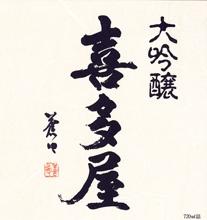 大吟醸
喜多屋
蒼口
720ml詰